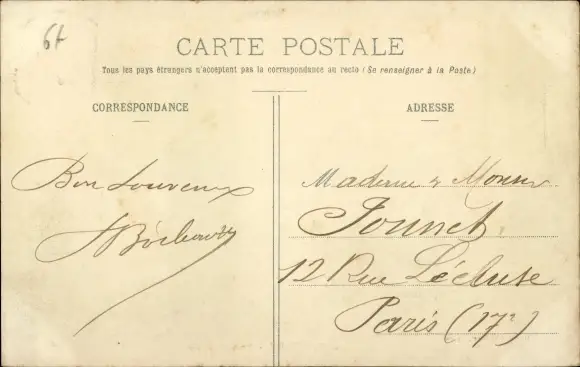 64
CARTE POSTALE
Tous les pays étrangers n'acceptent pas la correspondance au recto (Se renseigner à la Poste)
CORRESPONDANCE
ADRESSE
Bon Souvenir
Madame & Monsieur
12 Rue Lécluse
Paris (17e)